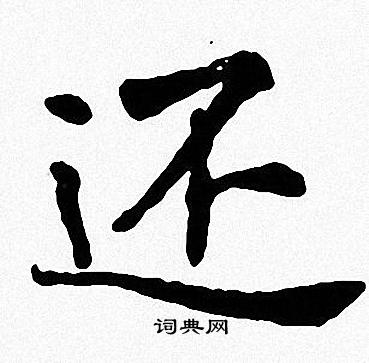 还
词典网